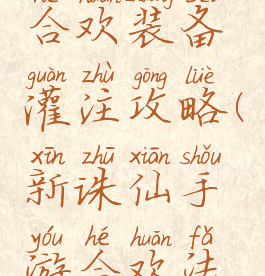 合欢装备
guàn zhù gōng lüè
灌注攻略(
xīn zhū xiān shǒu
新诛仙手
yóu hé huān fǎ
游合欢法